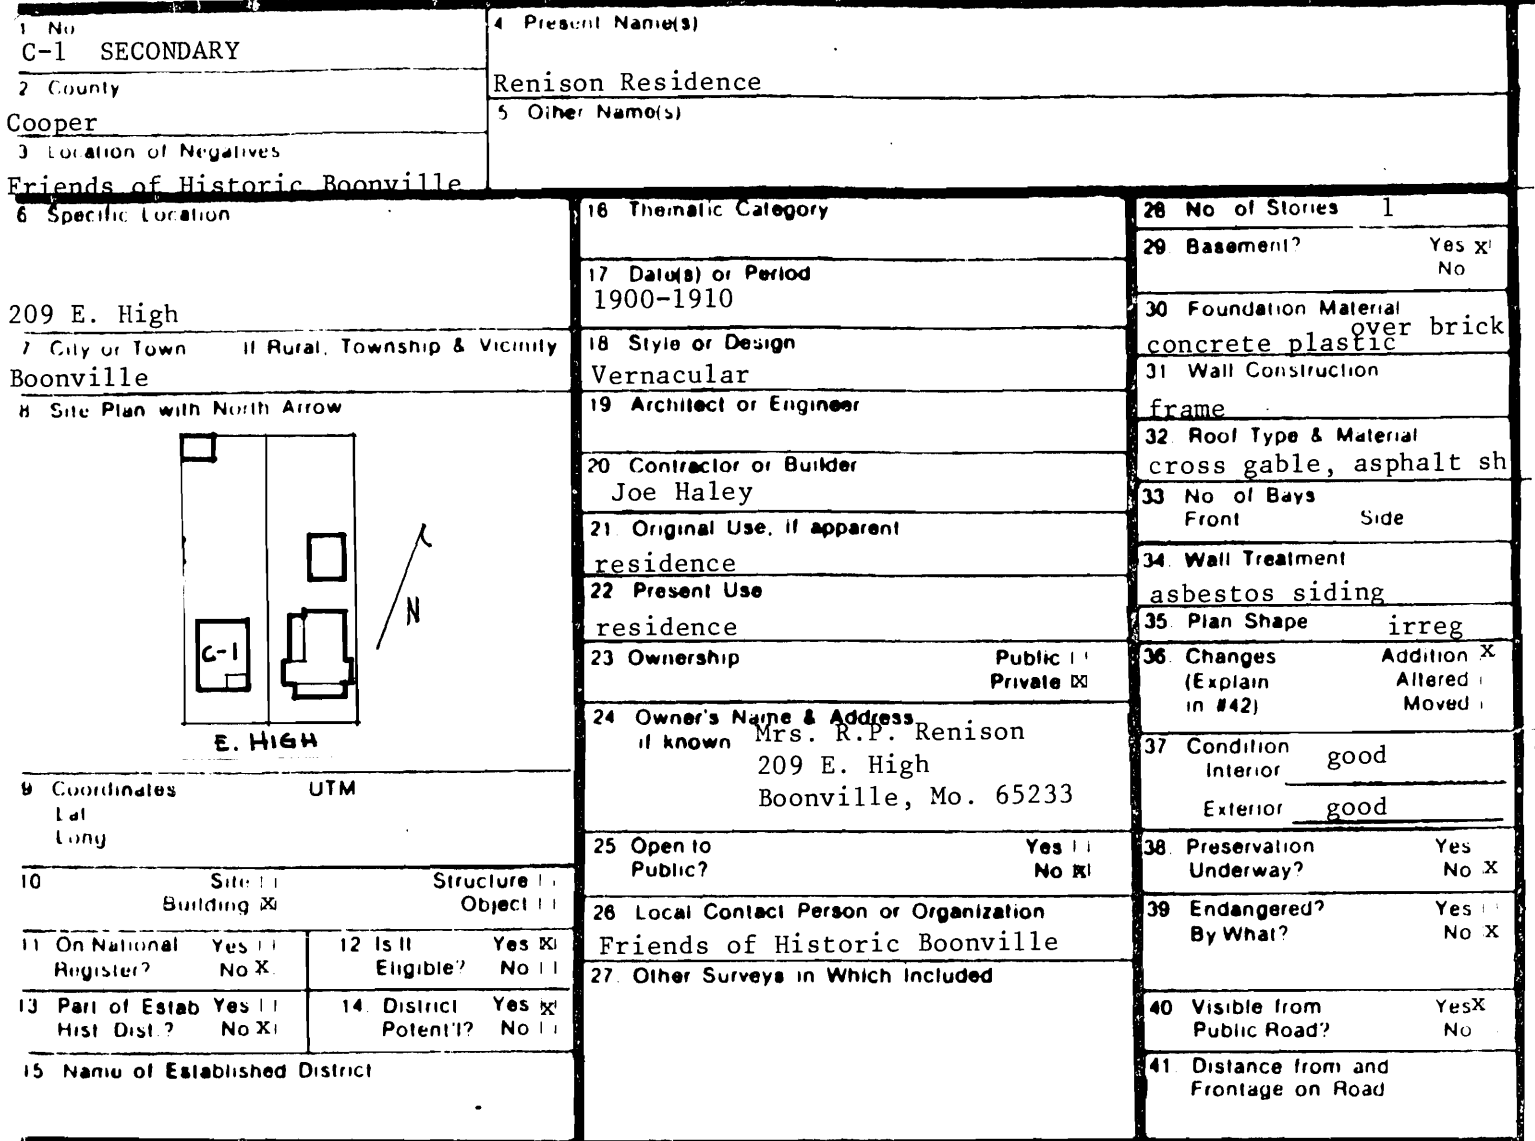 1 No
C-1 SECONDARY
2 County
Cooper
3 Location of Negatives
Friends of Historic Boonville
4 Present Name(s)
Renison Residence
5 Other Name(s)
6 Specific Location
209 E. High
7 City or Town If Rural, Township & Vicinity
Boonville
8 Site Plan with North Arrow
C-1
N
E. HIGH
9 Coordinates UTM
Lat
Long
10 Site Structure
Building X Object
11 On National Yes
Register? No X
12 Is It Yes X
Eligible? No
13 Part of Estab Yes
Hist Dist.? No X
14. District Yes X
Potent'l? No
15 Name of Established District
16 Thematic Category
17 Date(s) or Period
1900-1910
18 Style or Design
Vernacular
19 Architect or Engineer
20 Contractor or Builder
Joe Haley
21. Original Use, if apparent
residence
22 Present Use
residence
23 Ownership Public
Private X
24 Owner's Name & Address
if known Mrs. R.P. Renison
209 E. High
Boonville, Mo. 65233
25 Open to Yes
Public? No X
26 Local Contact Person or Organization
Friends of Historic Boonville
27. Other Surveys in Which Included
28 No of Stories 1
29. Basement? Yes X
No
30 Foundation Material
over brick
concrete plastic
31 Wall Construction
frame
32. Roof Type & Material
cross gable, asphalt sh
33 No of Bays
Front Side
34. Wall Treatment
asbestos siding
35. Plan Shape irreg
36. Changes Addition X
(Explain Altered
in #42) Moved
37 Condition
Interior good
Exterior good
38. Preservation Yes
Underway? No X
39 Endangered? Yes
By What? No X
40 Visible from Yes X
Public Road? No
41. Distance from and
Frontage on Road